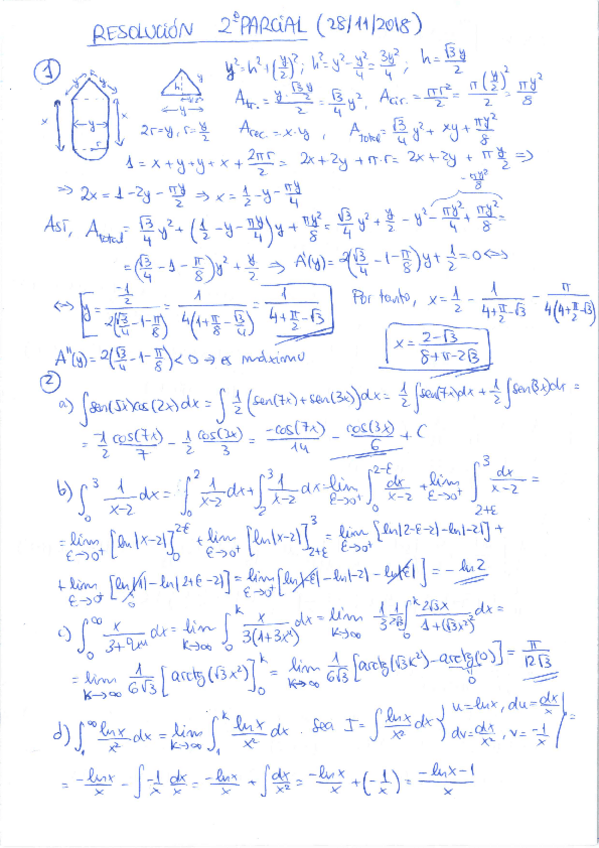 RESOLUCIÓN 2º PARCIAL (28/11/2018)
① y² = h² + (y/2)²; h² = y² - y²/4 = 3y²/4; h = √3 y/2
2r = y, r = y/2
A_tr. = (y · √3 y/2)/2 = √3/4 y², A_cir. = πr²/2 = π(y/2)²/2 = πy²/8
A_rec. = x·y, A_total = √3/4 y² + xy + πy²/8
1 = x + y + y + x + 2πr/2 = 2x + 2y + π·r = 2x + 2y + π y/2 ⇒
⇒ 2x = 1 - 2y - πy/2 ⇒ x = 1/2 - y - πy/4
-πy²/8
Así, A_total = √3/4 y² + (1/2 - y - πy/4)y + πy²/8 = √3/4 y² + y/2 - y² - πy²/4 + πy²/8 =
= (√3/4 - 1 - π/8)y² + y/2 ⇒ A'(y) = 2(√3/4 - 1 - π/8)y + 1/2 = 0 ⇔
⇔ y = (-1/2)/(2(√3/4 - 1 - π/8)) = 1/(4(1 + π/8 - √3/4)) = 1/(4 + π/2 - √3)
Por tanto, x = 1/2 - 1/(4 + π/2 - √3) - π/(4(4 + π/2 - √3))
x = (2 - √3)/(8 + π - 2√3)
A''(y) = 2(√3/4 - 1 - π/8) < 0 → es máximo
②
a) ∫sen(5x)cos(2x)dx = ∫ 1/2 (sen(7x) + sen(3x))dx = 1/2 ∫sen(7x)dx + 1/2 ∫sen(3x)dx =
= -1/2 cos(7x)/7 - 1/2 cos(3x)/3 = -cos(7x)/14 - cos(3x)/6 + C
b) ∫₀³ 1/(x-2) dx = ∫₀² 1/(x-2) dx + ∫₂³ 1/(x-2) dx = lim ε→0⁺ ∫₀^(2-ε) dx/(x-2) + lim ε→0⁺ ∫_(2+ε)³ dx/(x-2) =
= lim ε→0⁺ [ln|x-2|]₀^(2-ε) + lim ε→0⁺ [ln|x-2|]_(2+ε)³ = lim ε→0⁺ [ln|2-ε-2| - ln|-2|] +
+ lim ε→0⁺ [ln|1| - ln|2+ε-2|] = lim ε→0⁺ [ln|-ε| - ln|-2| - ln|ε|] = -ln 2
c) ∫₀^∞ x/(3+9x⁴) dx = lim k→∞ ∫₀^k x/(3(1+3x⁴)) dx = lim k→∞ 1/3 1/(2√3) ∫₀^k 2√3x/(1+(√3x²)²) dx =
= lim k→∞ 1/(6√3) [arctg(√3x²)]₀^k = lim k→∞ 1/(6√3) [arctg(√3k²) - arctg(0)] = π/(12√3)
d) ∫₁^∞ lnx/x² dx = lim k→∞ ∫₁^k lnx/x² dx. Sea I = ∫ lnx/x² dx { u = lnx, du = dx/x
dv = dx/x², v = -1/x } =
= -lnx/x - ∫ -1/x dx/x = -lnx/x + ∫ dx/x² = -lnx/x + (-1/x) = (-lnx-1)/x